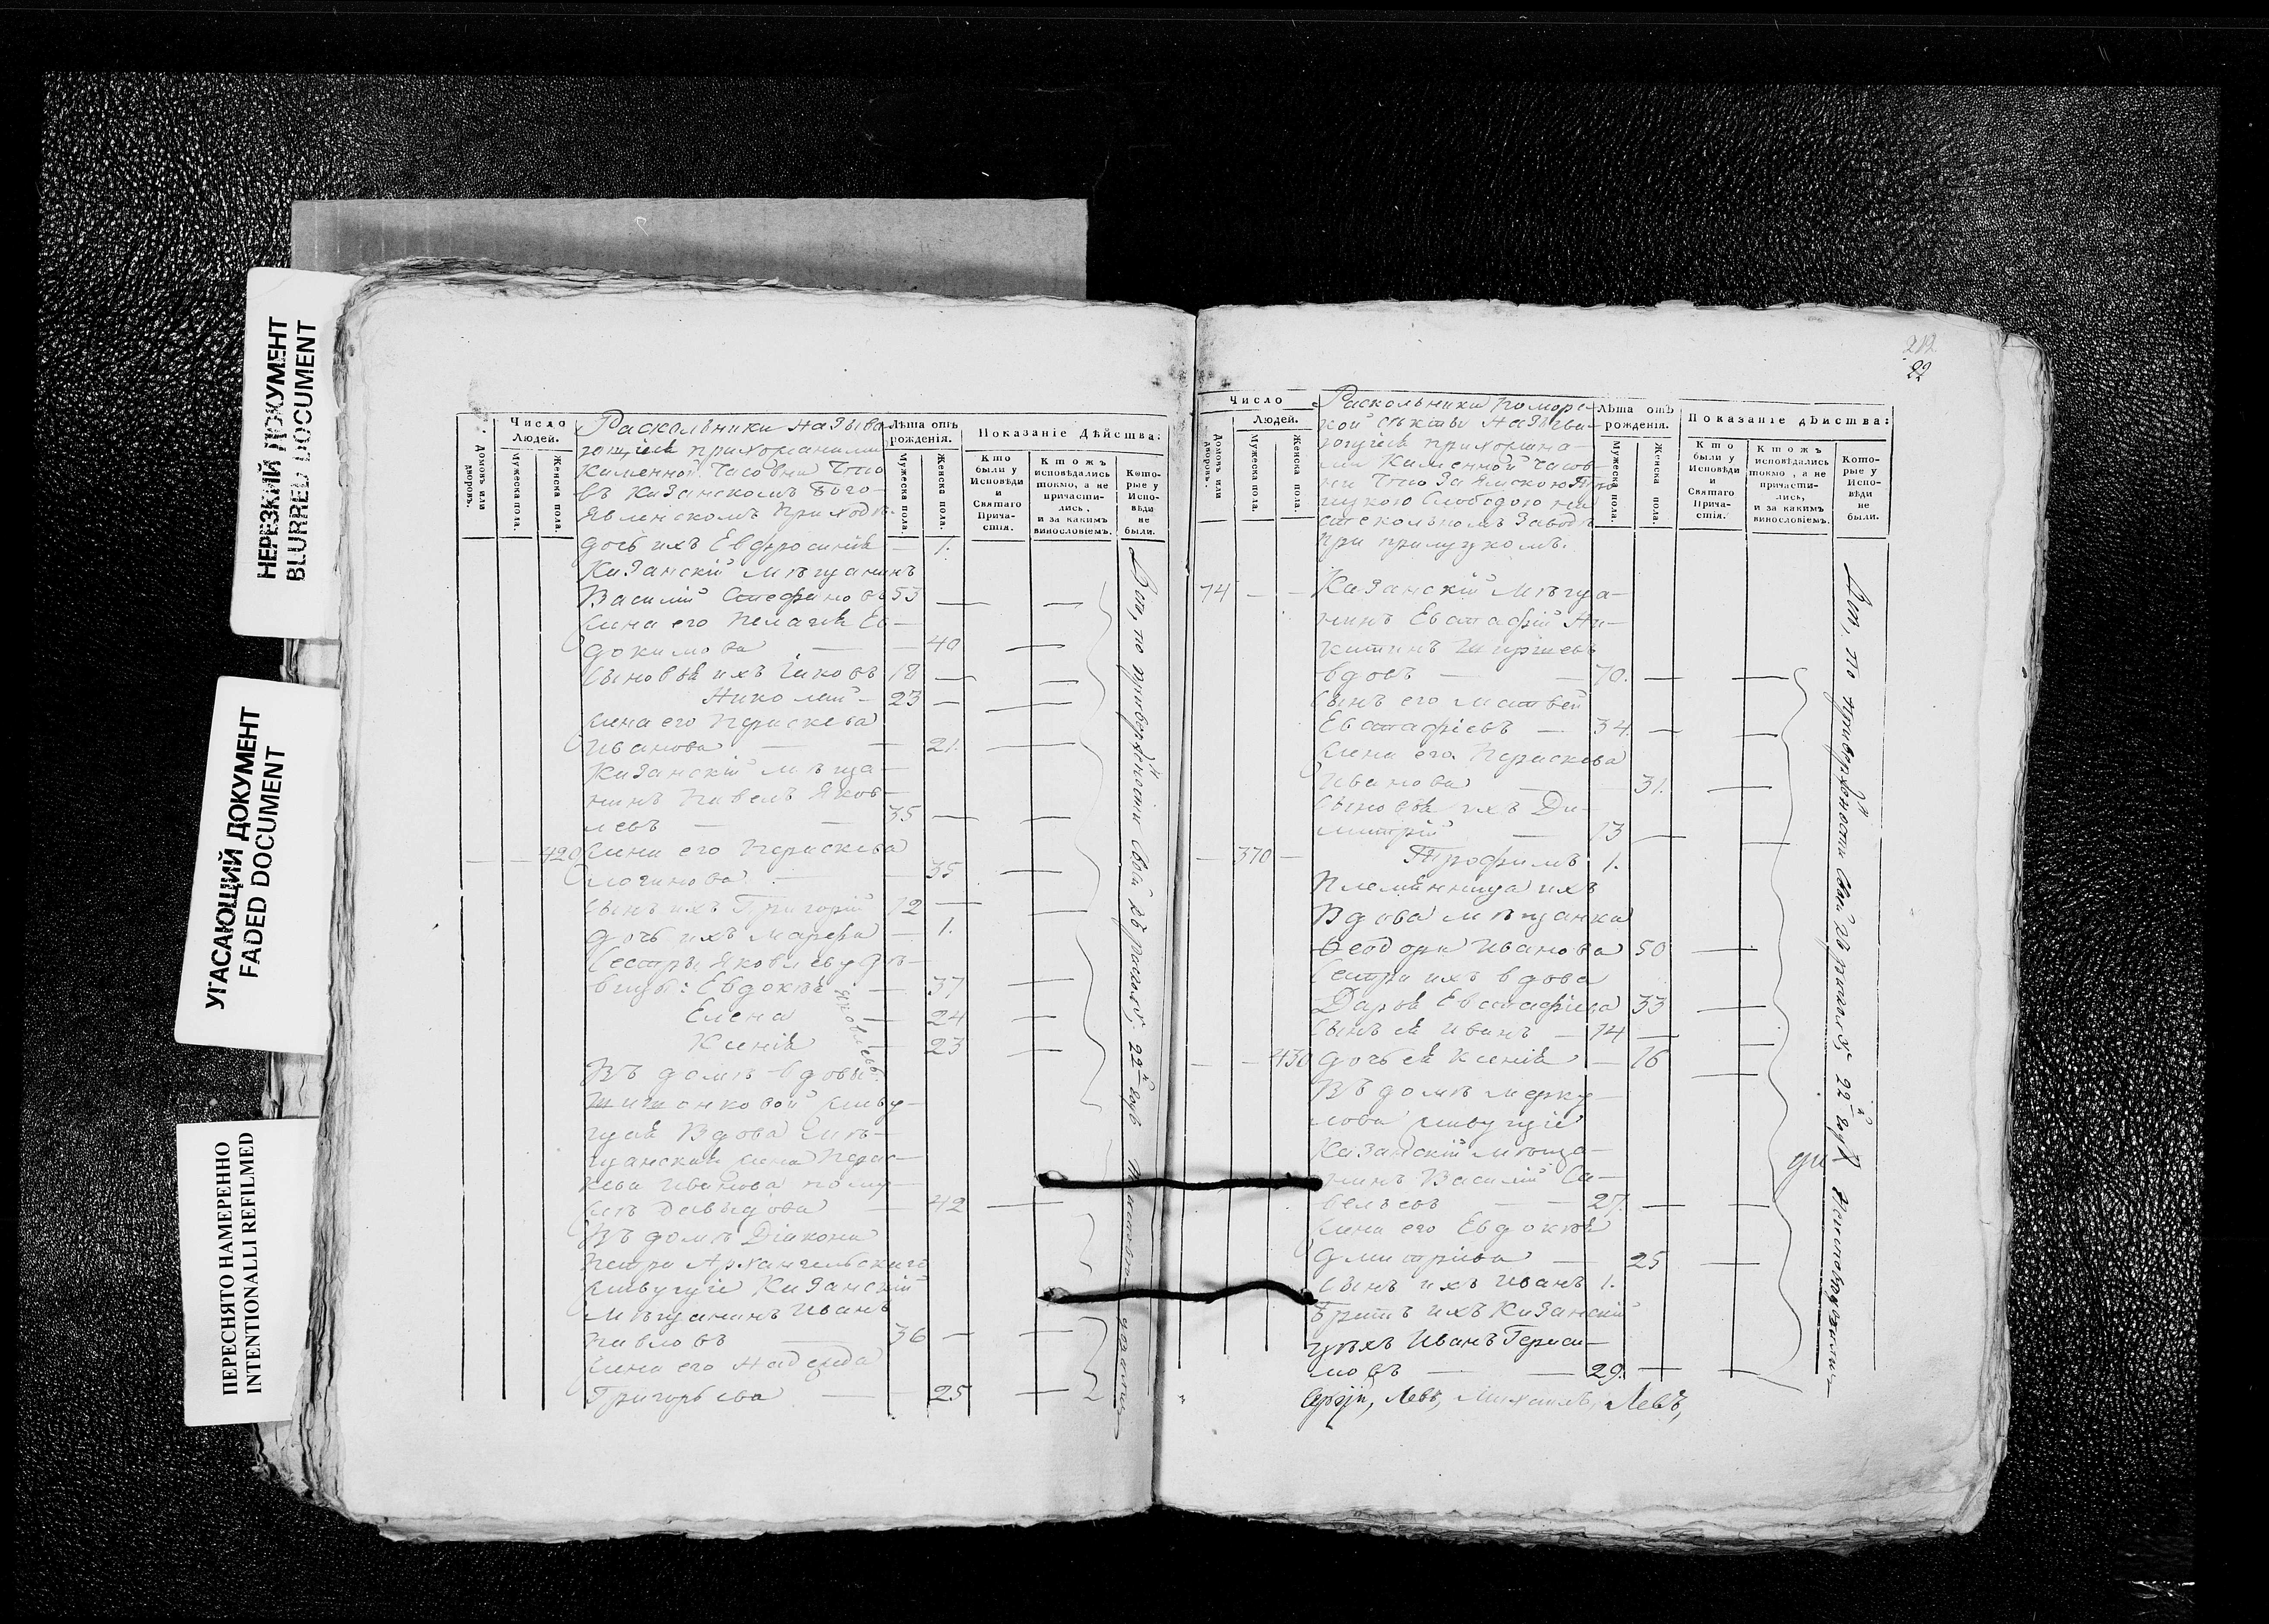 НЕРЕЗКИЙ ДОКУМЕНТ
BLURRED DOCUMENT
УГАСАЮЩИЙ ДОКУМЕНТ
FADED DOCUMENT
ПЕРЕСНЯТО НАМЕРЕННО
INTENTIONALLI REFILMED
Число
Людей.
Домовъ или дворовъ.
Мужеска пола.
Женска пола.
Раскольники называ
ющіеся прихожанами
каменной часовни что
въ Казанскомъ Бого-
явленскомъ приходѣ
Лѣта отъ рожденія.
Мужеска пола
Женска пола.
Показаніе Дѣйства:
Кто были у Исповѣди и Святаго Прича-стія.
Ктожъ исповѣдались токмо, а не причасти-лись, и за какимъ винословіемъ.
Кото-рые у Испо-вѣди не были.
дочь ихъ Евфросинія — 1.
Казанскій мѣщанинъ
Василій Стефановъ 53
жена его Пелагія Ев-
докимова — 40
сыновья ихъ Іаковъ 18
Николай 23
жена его Параскева
Иванова — 21.
Казанскій мѣща-
нинъ Павелъ Яков-
левъ — 35
420 жена его Параскева
Логинова — 35
сынъ ихъ Григорій 12
дочь ихъ Марфа — 1.
сестры Яковлеву дѣ-
вицы: Евдокія — 37
Елена — 24
Ксенія 23
Яковлевы.
Въ домѣ вдовы
живу-
щая вдова мѣ-
щанская жена Парас-
кева Иванова по му-
жѣ Давыдова — 42
Въ домѣ Діакона
Петра Архангельскаго
живущіе Казанскій
мѣщанинъ Иванъ
Павловъ — 36
жена его Надежда
Григорьева — 25
22
Число
Людей.
Домовъ или дворовъ.
Мужеска пола.
Женска пола.
Раскольники помор-
кой секты называ-
ющіеся прихожана-
ми каменной часов-
ни что за Ямскою
слободою на
стекольномъ заводѣ
при
Лѣта отъ рожденія.
Мужеска пола.
Женска пола.
Показаніе дѣйства:
Кто были у Исповѣди и Святаго Прича-стія.
Ктожъ исповѣдались токмо, а не причасти-лись, и за какимъ винословіемъ.
Кото-рые у Испо-вѣди не были.
74 — — Казанскій мѣща-
нинъ Евстафій Ни-
китинъ
вдовъ — 70.
сынъ его Матвей
Евстафіевъ — 34.
жена его Параскева
Иванова — 31.
сыновья ихъ Ди-
митрій — 13
370 — Трофимъ 1.
Племянница ихъ
вдова мѣщанка
Ѳеодора Иванова 50
сестра ихъ вдова
Дарья Евстафіева 33
сынъ ея Иванъ — 14
430 дочь ея Ксенія — 16
Въ домѣ Мерку-
лова живущіе
Казанскій мѣща-
нинъ Василій Са-
вельевъ — 27.
жена его Евдокія
Дмитріева — 25
сынъ ихъ Иванъ 1.
Братъ ихъ Казанскій
цѣхъ Иванъ Гераси-
мовъ — 29.
Левъ, Михаилъ, Левъ,